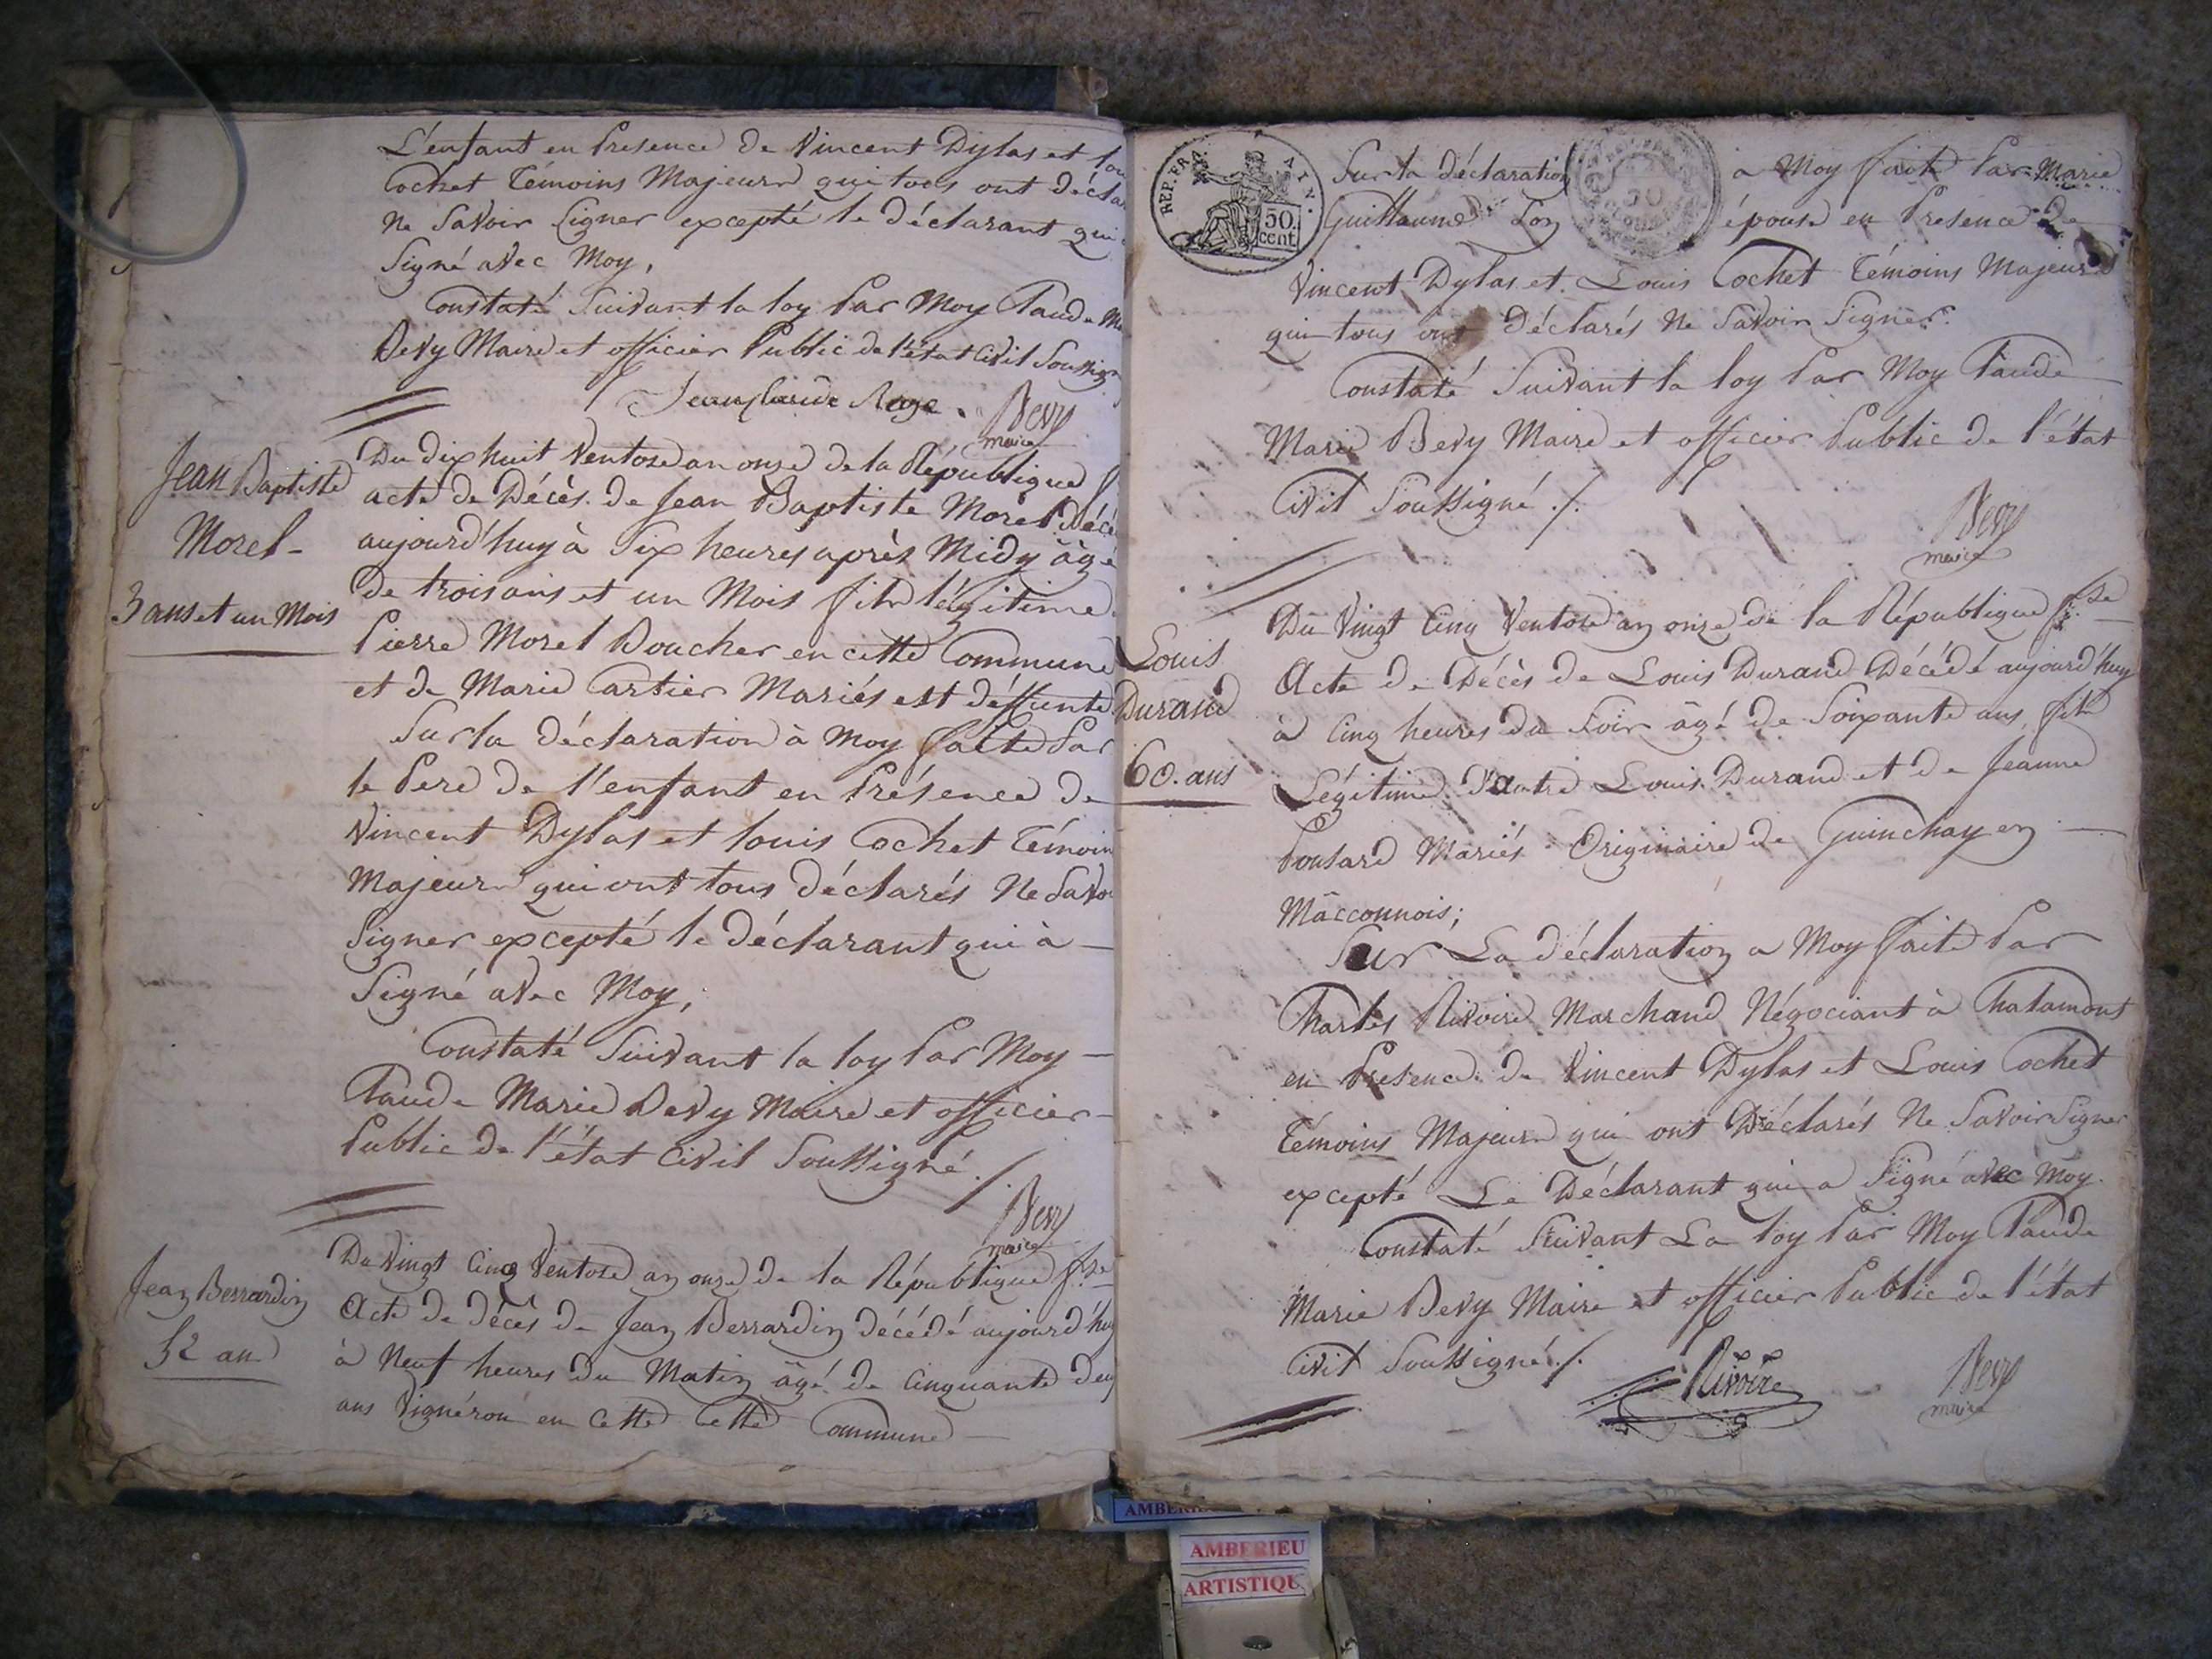 L'enfant en Presence de Vincent Dylas et Lou
Cochet Témoins Majeurs qui tous ont décla
Ne Savoir Signer excepté le déclarant qui
Signé avec Moy,
Constaté Suivant la loy Par Moy Claude Ma
Bevy Maire et officier Public de l'état Civil Soussign
Jean Claude
Bevy
maire
Jean Baptiste
Morel
3 ans et un Mois
Du dix huit Ventose an onze de la République f
acte de Décès de Jean Baptiste Morel Décé
aujourd'huy à Six heures après Midy âgé
de trois ans et un Mois fils légitime
Pierre Morel Boucher en cette Commune
et de Marie Cartier Mariés est déffunte
Sur la déclaration à Moy faite Par
le Pere de l'enfant en Présence de
Vincent Dylas et Louis Cochet Témoin
Majeurs qui ont tous déclarés Ne Savoi
Signer excepté le déclarant qui à
Signé avec Moy,
Constaté Suivant la loy Par Moy
Claude Marie Bevy Maire et officier
Public de l'état Civil Soussigné ./.
Bevy
maire
Jean Berrardin
52 ans
Du Vingt Cinq Ventose an onze de la République f.se
Acte de décès de Jean Berrardin décédé aujourd'huy
à Neuf heures du Matin âgé de Cinquante deux
ans Vignéron en Cette Cette Commune
REP. FRA.
50.
cent.
Sur la déclaration a Moy faite Par Marie
Guillaume Son épouse en Presence de
Vincent Dylas et Louis Cochet Témoins Majeurs
qui tous ont Déclarés Ne Savoir Signer.
Constaté Suivant la loy Par Moy Claude
Marie Bevy Maire et officier Public de l'état
Civil Soussigné ./.
Bevy
maire
Louis
Durand
60. ans
Du Vingt Cinq Ventose an onze de la République f.se
Acte de Décès de Louis Durand Décédé aujourd'huy
à Cinq heures du Soir âgé de Soixante ans fils
Légitime d'autre Louis Durand et de Jeanne
Ponsard Mariés Originaire de Guinchay en
Mâcconnois;
Sur La déclaration a Moy faite Par
Charles Rivoire Marchand Négociant à Chalamont
en Presence de Vincent Dylas et Louis Cochet
Témoins Majeurs qui ont Déclarés Ne Savoir Signer
excepté Le Déclarant qui a Signé avec Moy.
Constaté Suivant La loy Par Moy Claude
Marie Bevy Maire et officier Public de l'état
Civil Soussigné ./.
Rivoire
Bevy
maire
AMBERIEU
ARTISTIQU